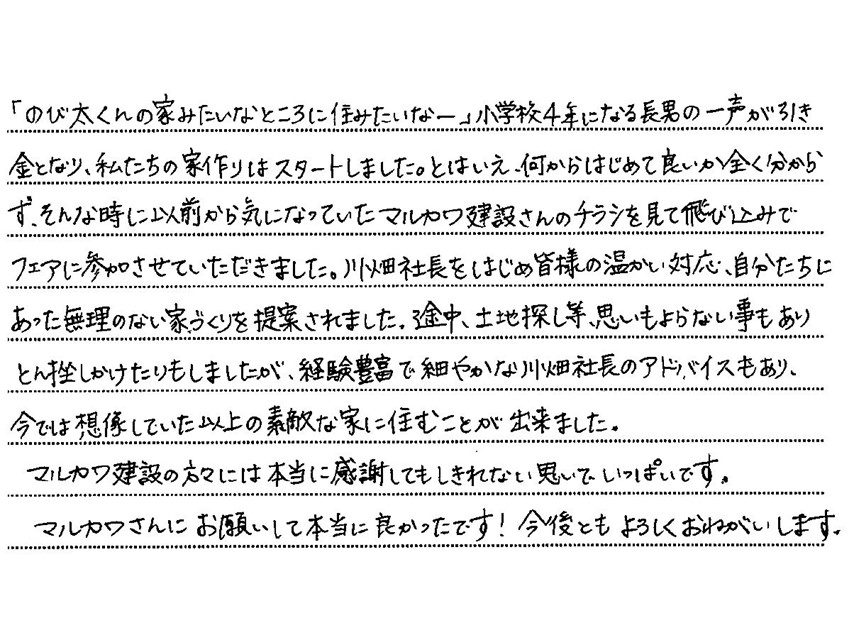 「のび太くんの家みたいなところに住みたいなー」小学校4年になる長男の一声が引き
金となり、私たちの家作りはスタートしました。とはいえ、何からはじめて良いか全く分から
ず、そんな時に以前から気になっていたマルカワ建設さんのチラシを見て飛び込みで
フェアに参加させていただきました。川畑社長をはじめ皆様の温かい対応、自分たちに
あった無理のない家づくりを提案されました。途中、土地探し等、思いもよらない事もあり
とん挫しかけたりもしましたが、経験豊富で細やかな川畑社長のアドバイスもあり、
今では想像していた以上の素敵な家に住むことが出来ました。
マルカワ建設の方々には本当に感謝してもしきれない思いでいっぱいです。
マルカワさんにお願いして本当に良かったです!今後ともよろしくおねがいします。